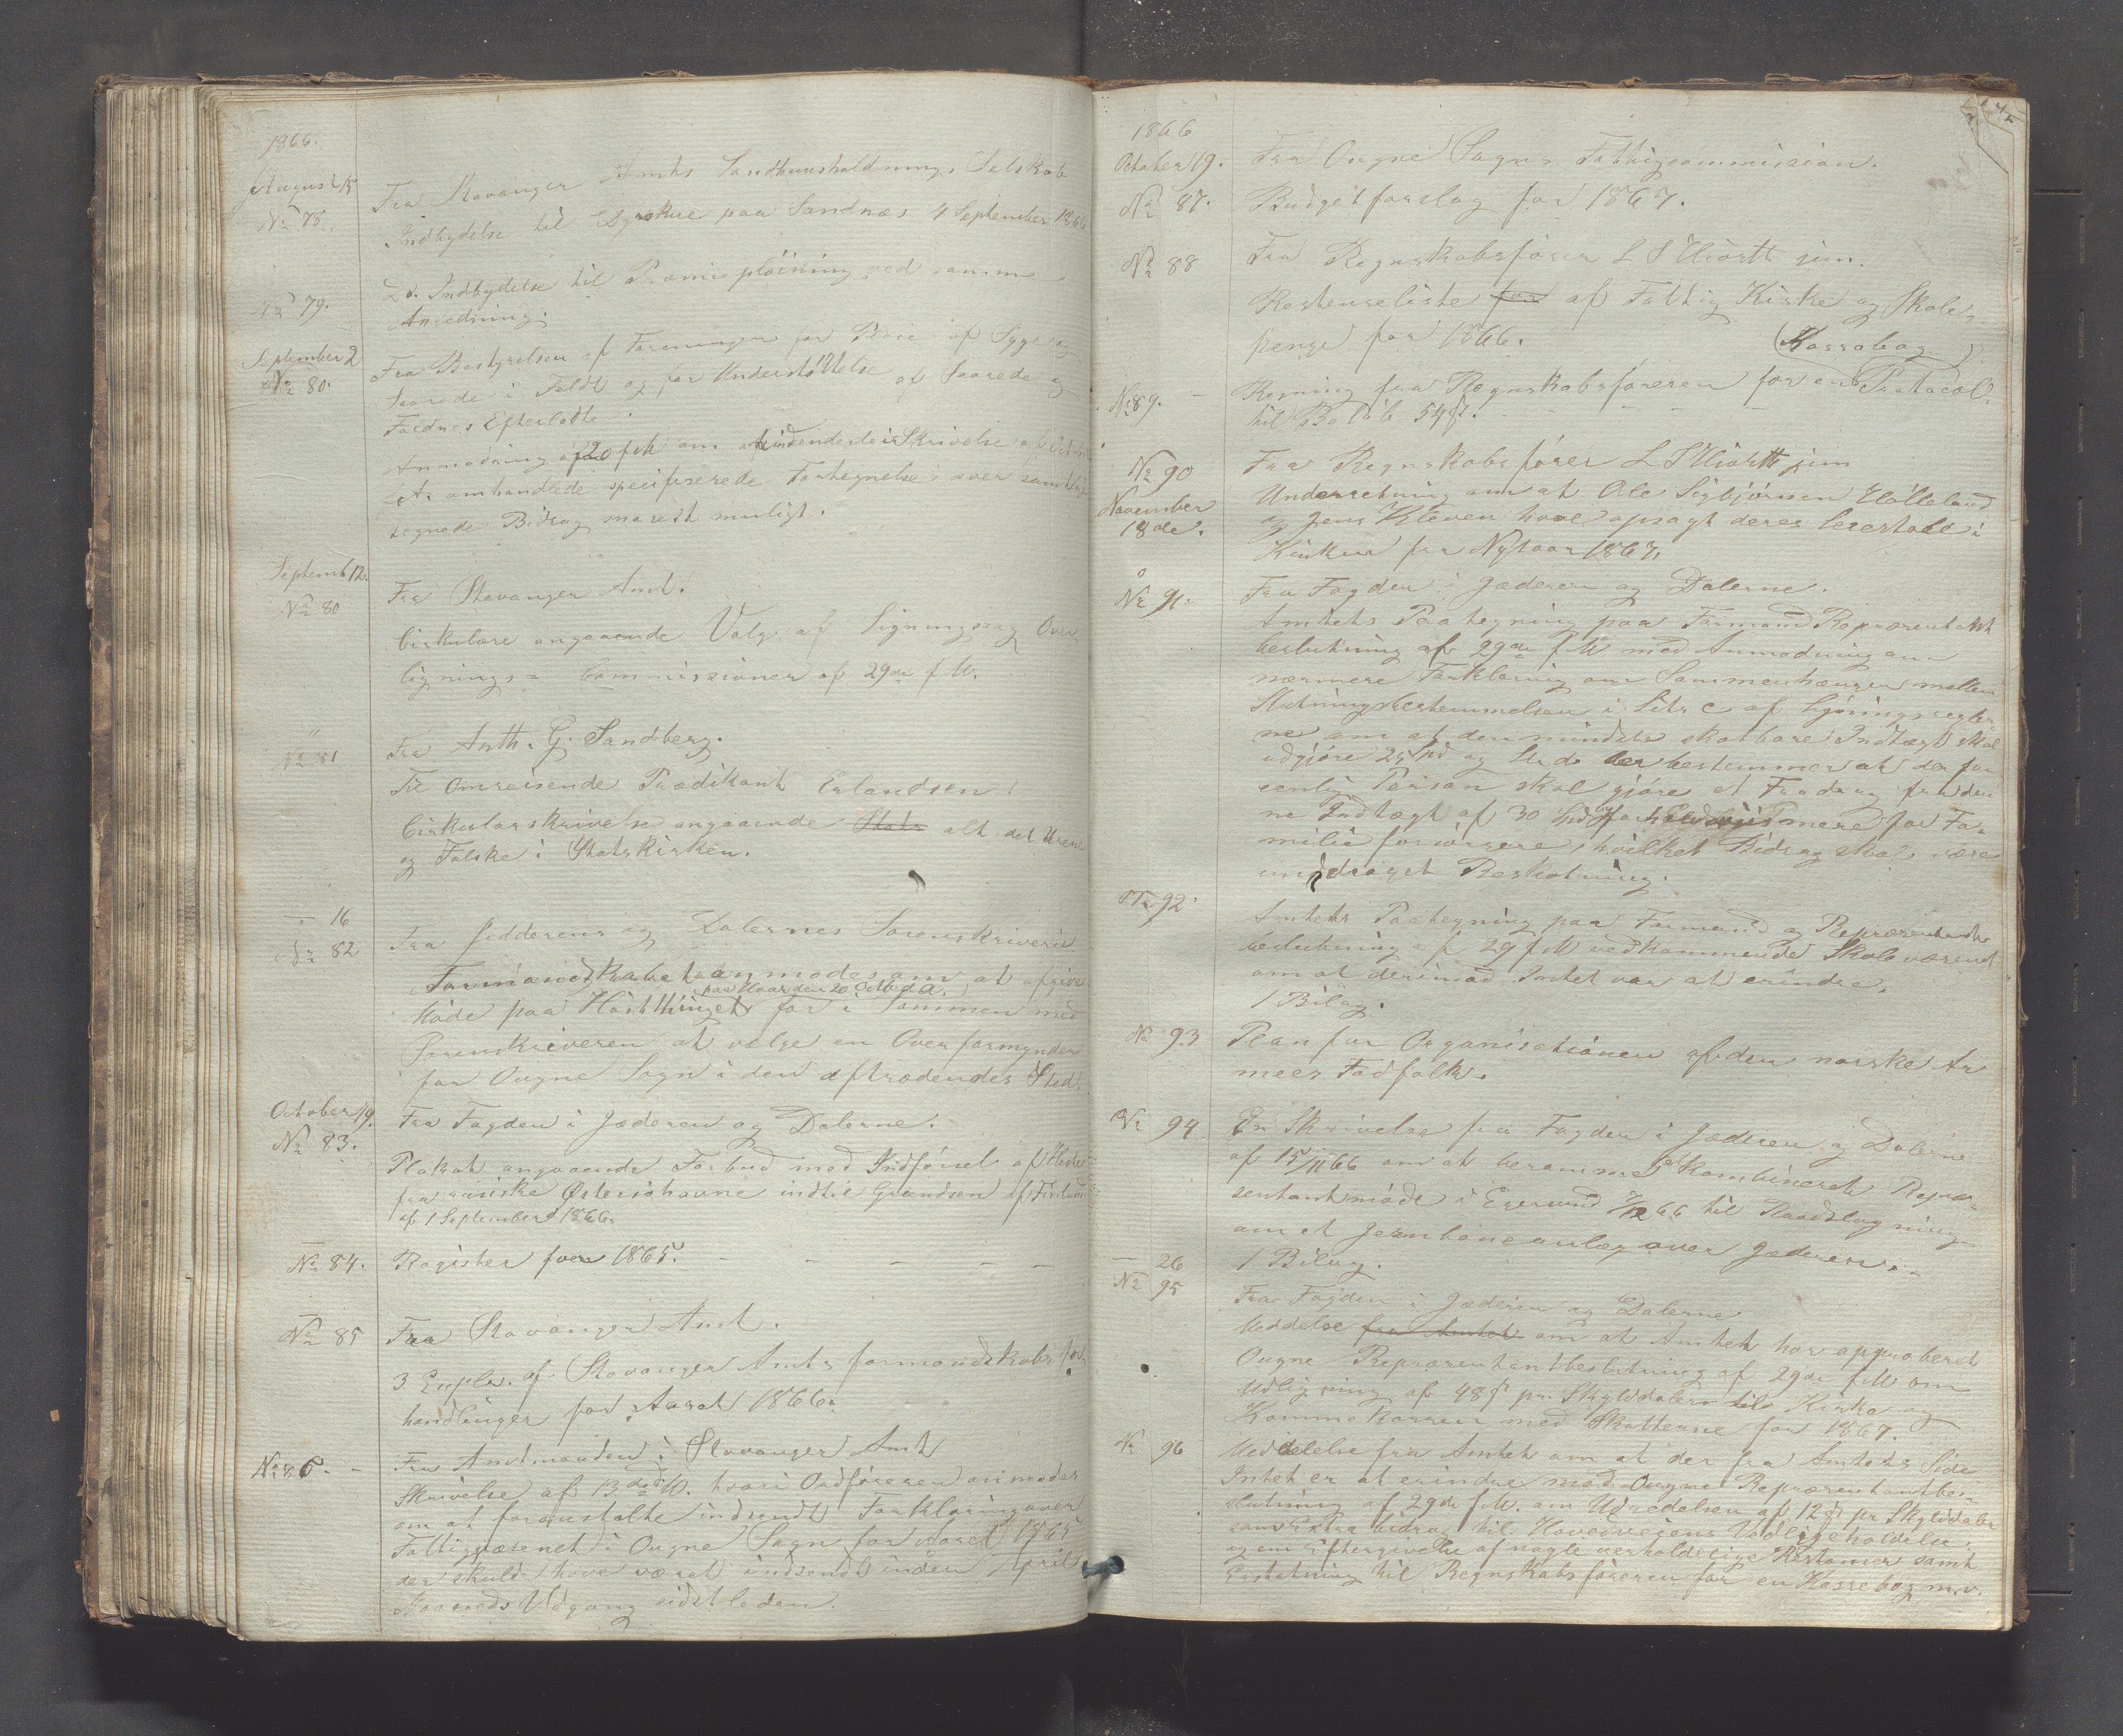 1866.
August 15
No 78.
Fra Stavanger Amts Landhuusholdnings Selskab
Indbydelse til Dyrskue paa Sandnæs 4 September 1866
No 79.
Do. Indbydelse til Præmiepløining ved samme
Anledning.
September 2
No 80.
Fra Bestyrelsen af Foreningen for Pleie af Syge og
Saarede i Feldt og for Understøttelse af Saarede og
Faldnes Efterladte.
Anmodning af 20 f M om
omhandlede specificerede Fortegnelse over samtlige
tegnede Bidrag snarest muligt.
Septemb 12.
No 80
Fra Stavanger Amt.
Cirkulære angaaende Valg af Lignings og Over-
lignings- Commissioner af 29de f M.
"
No 81
Fra Anth. G. Sandberg.
Til Omreisende Prædikant Erlandsen!
Cirkulærskrivelse angaaende Stats alt det Urene
og Falske i Statskirken.
— 16
No 82
Fra Jedderens og Dalernes Sorenskriveri
Formandskabet anmodes om at afgive
paa Haar den 20 Octob d A.
Møde paa Høstthinget for i Sammen med
Sorenskriveren at vælge en Overformynder
for Ougne Sogn i den aftrædendes Sted.
October 19.
No 83.
Fra Fogden i Jæderen og Dalerne.
Plakat angaaende Forbud mod Indførsel af Heste
fra russiske Østersøhavne indtil Grændsen af Finland
af 1 September 1866.
—
No 84.
Register for 1865. — — — — —
—
No 85
Fra Stavanger Amt.
3 Explr. af Stavanger Amts formandskabs for-
handlinger for Aaret 1866.
No 86. -
Fra Amtmanden i Stavanger Amt
Skrivelse af 13de d M. hvori Ordføreren anmodes
om at foranstalte indsendt Forklaring over
Fattigvæsenet i Ougne Sogn for Aaret 1865
der skulde have været indsendt inden April
Maaneds Udgang sidstleden.
1866
October 19.
Fra Ougne Sogns Fattigcommission.
No 87.
Budgetforslag for 1867.
No 88
Fra Regnskabsfører L S Hiorth jun.
Restanseliste for af Fattig Kirke og Skole-
penge for 1866.
(Kassabog)
No 89. -
Regning fra Regnskabsføreren for en Protocol.
til Beløb 54 ß. - - - - -
No 90
November
18de.
Fra Regnskabsfører L S Hiorth jun
Underretning om at Ole Sigbjørnsen Hølleland
og Jens Kleven have opsagt deres leiestole i
Kirken fra Nytaar 1867.
No 91.
Fra Fogden i Jæderen og Dalerne.
Amtets Paategning paa Formand Repræsentant
beslutning af 29de f M med Anmodning om
nærmere Forklaring om Sammenhængen mellem
Slutningsbestemmelsen i Litr c af Ligningsregler-
ne om at den mindste skatbare Indtægt skal
udgjøre 25 Spd og Litr d bestemmer at der for
eenlig Person skal gjøre et Fradrag fra den-
ne Indtægt af 30 Spd og forholdsviis mere for Fa-
milieforsørgere, hvilket Bidrag skal være
unddraget Beskatning.
No 92.
Amtets Paategning paa Formand og Repræsentant
beslutning af 29 f M vedkommende Skolevæsenet
om at derimod Intet var at erindre.
1 Bilag.
No 93
Plan for Organisationen af den norske Ar
mees Fodfolk.
No 94
En Skrivelse fra Fogden i Jæderen og Dalerne
af 15/11 66 om at berammes Kombineret Repræ-
sentantmøde i Egersund 7/12 66 til Raadslagning
om et Jernbaneanlæg over Jæderen.-
1 Bilag.
— 26
No 95
Fra Fogden i Jæderen og Dalerne
Meddelse fra Amtet om at Amtet har approberet
Ougne Repræsentantbeslutning af 29de f M om
Udligning af 48 ß pr. Skylddaler til Kirke og
Kommekassen med Skatterne for 1867.
No 96
Meddelelse fra Amtet om at der fra Amtets Side
Intet er at erindre mod Ougne Repræsentantbe-
slutning af 29de f M. om Udredelsen af 12 ß pr Skylddaler
som Extra bidrag til Hovedveiens Vedligeholdelse.
og om Eftergivelse af nogle uerholdelige Restancer samt
Erstatning til Regnskabsføreren for en Kassebog m.v.